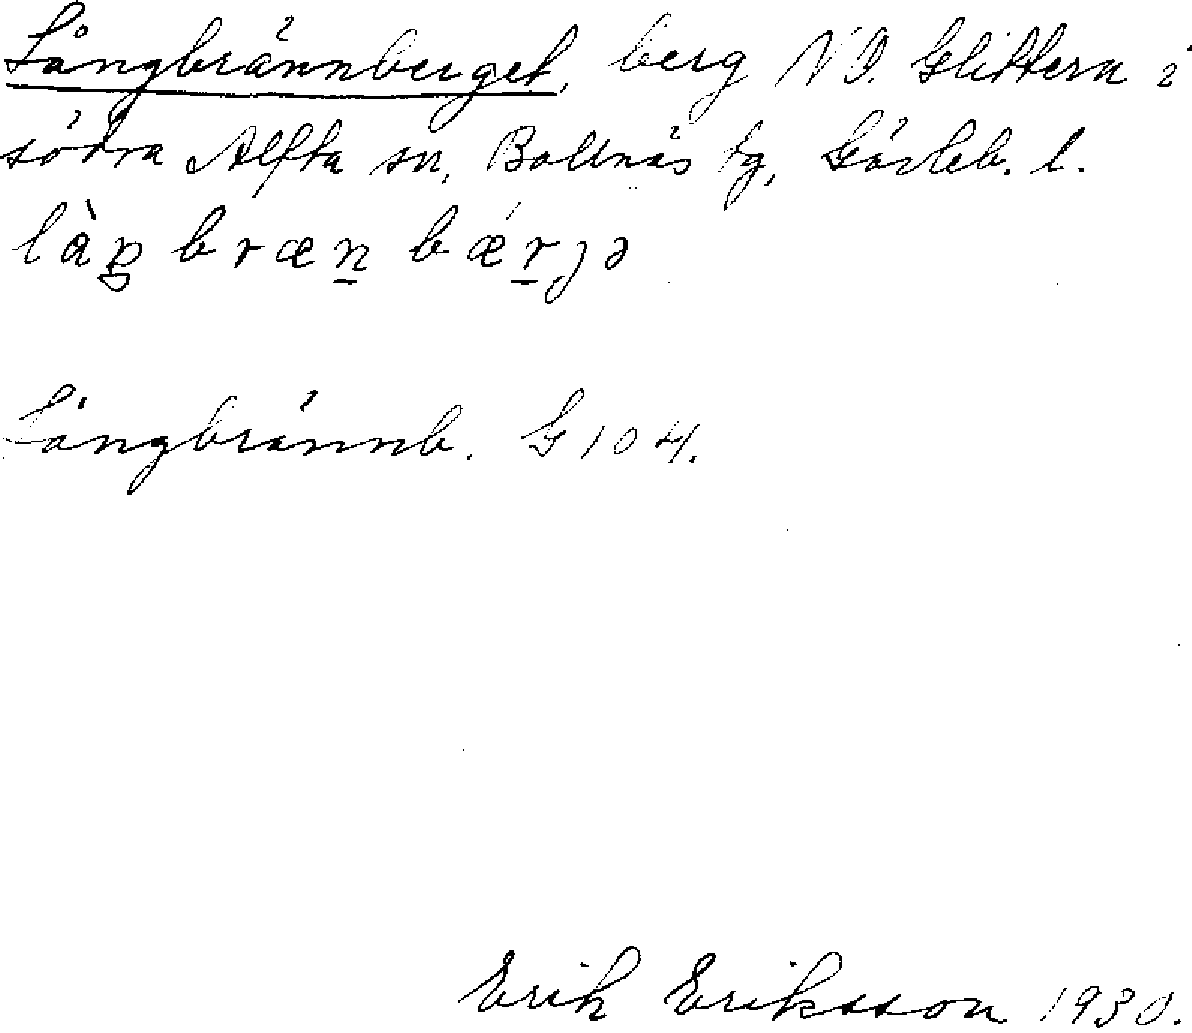 Långbrännberget, berg NO. Glittern i
södra Alfta sn, Bollnäs tg, Gävleb. l.
làŋ bræn bǽrjə
Långbrännb. G 104.
Erik Eriksson 1930.